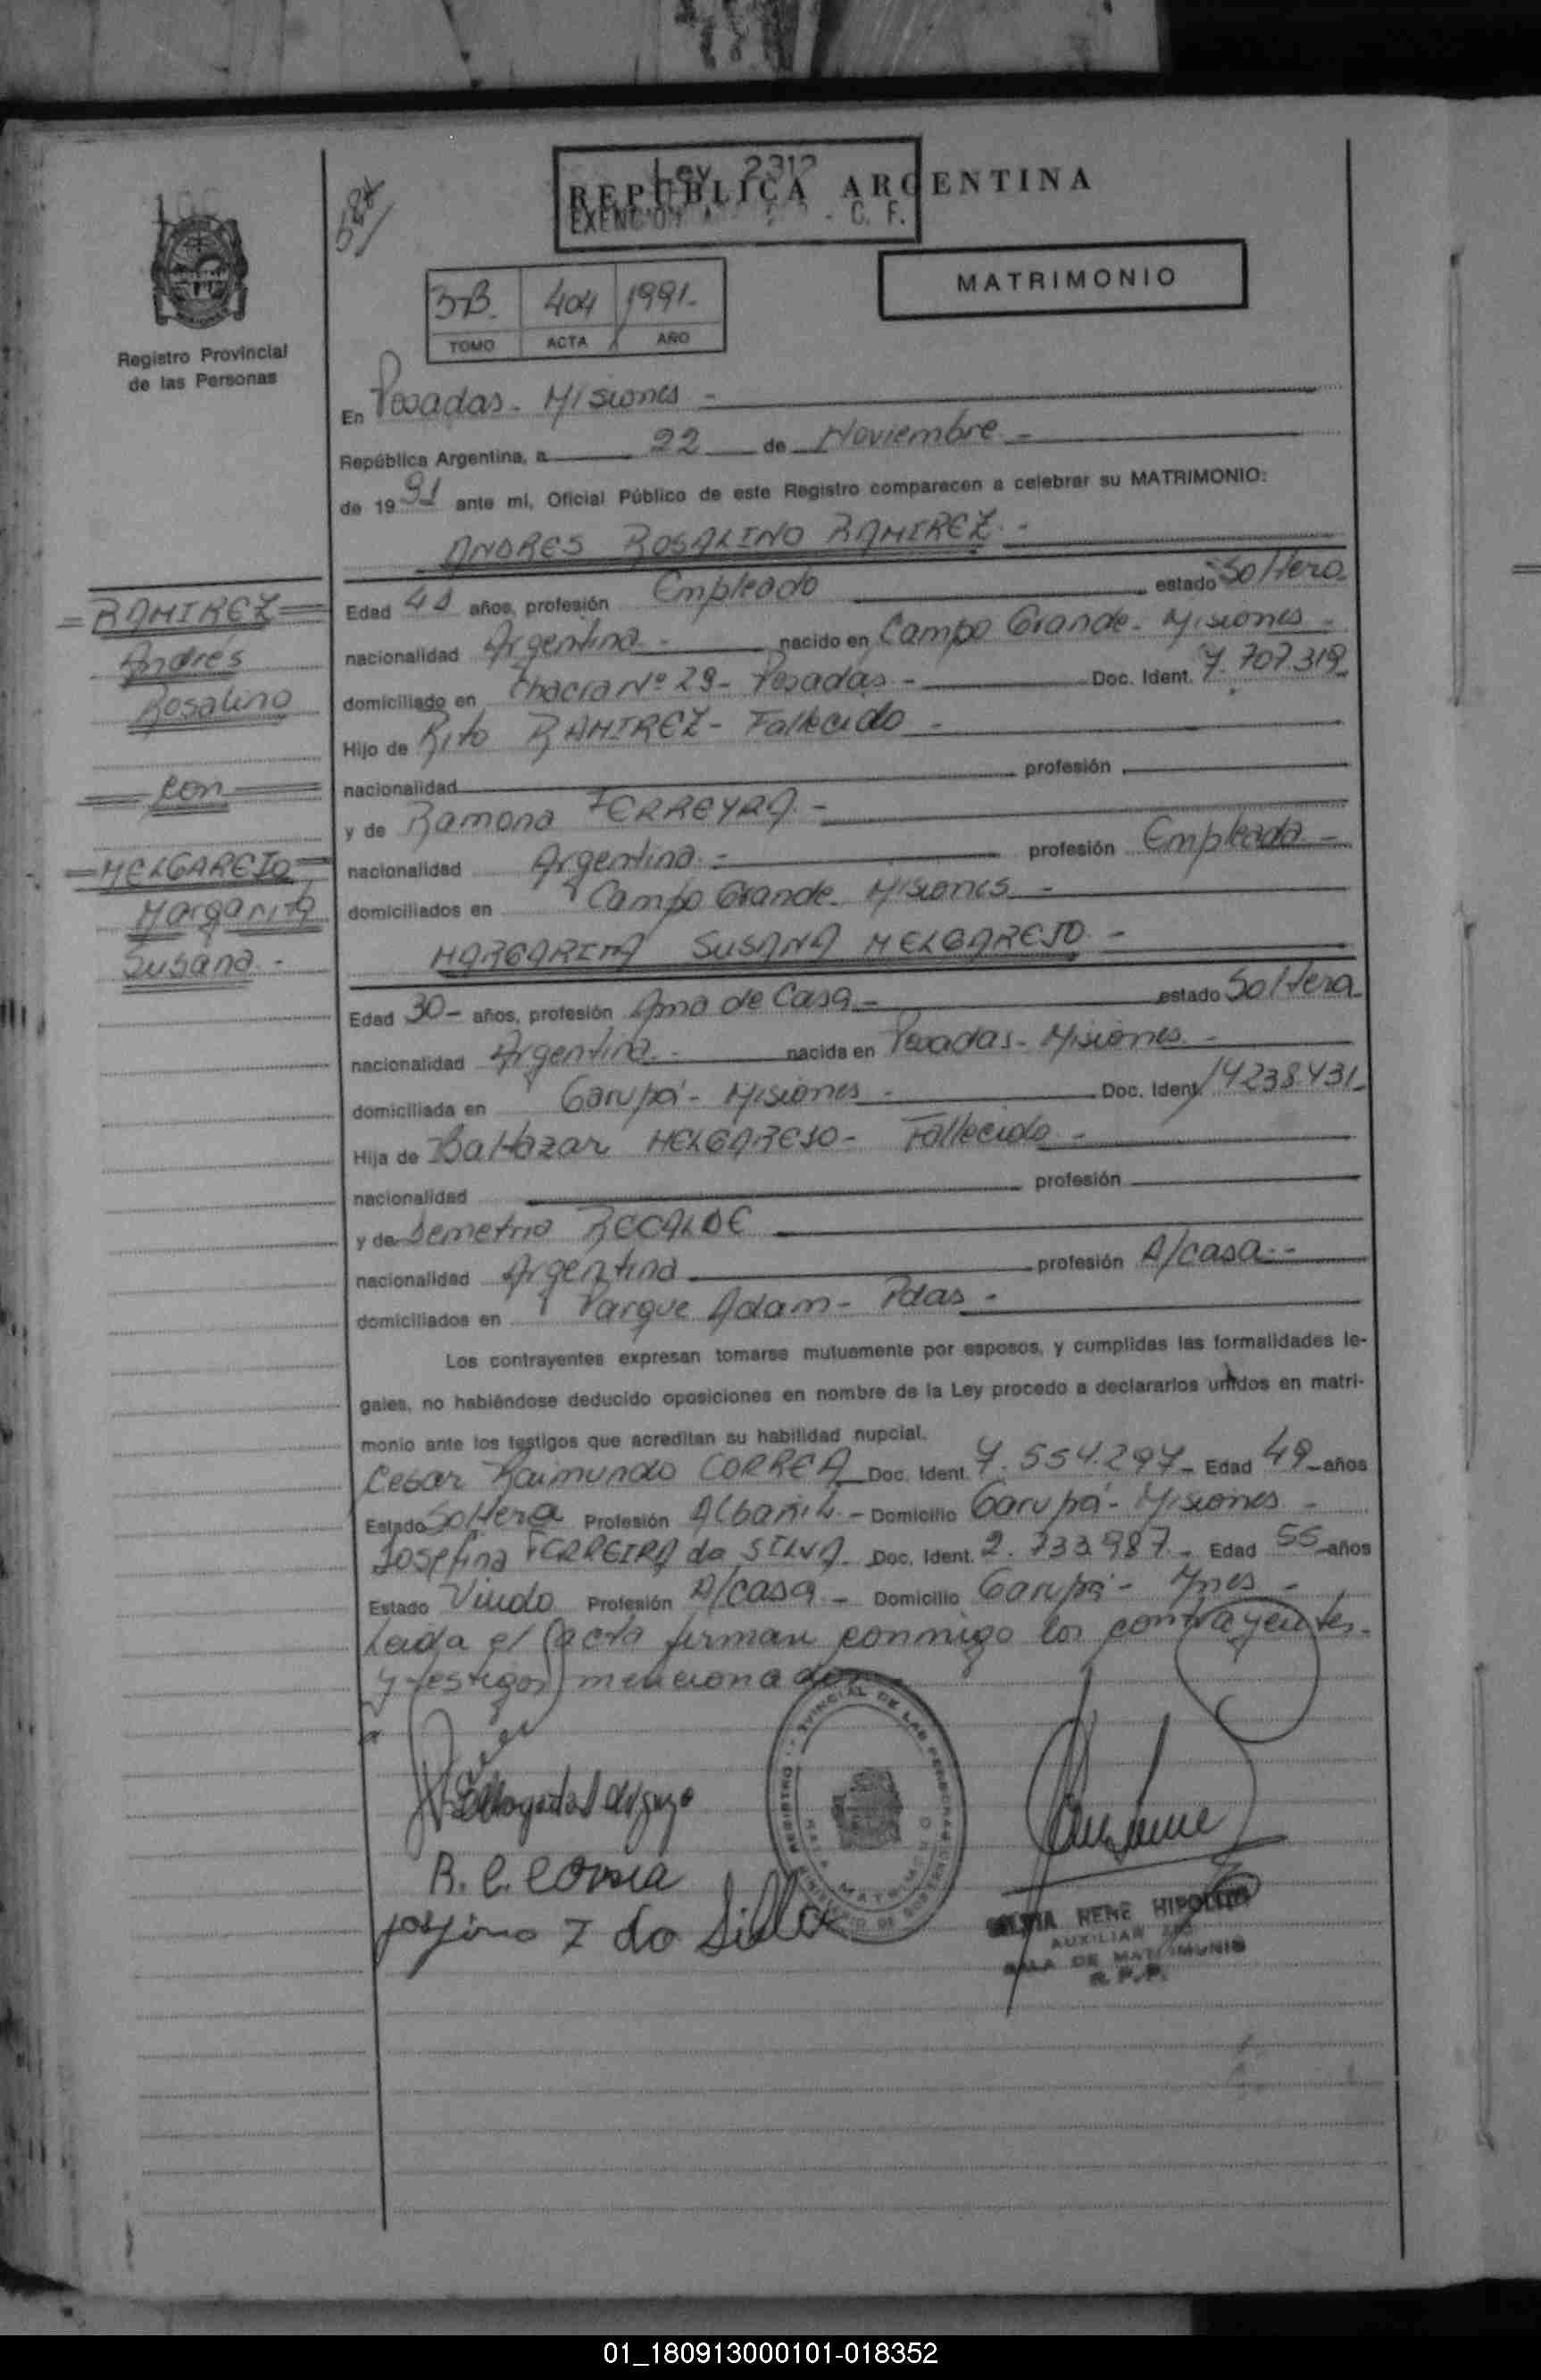 Ley 2312
REPUBLICA ARGENTINA
EXENCION C. F.
MATRIMONIO
3-B- 404 1991-
TOMO ACTA AÑO
Registro Provincial
de las Personas
En Posadas - Misiones -
República Argentina, a 22 de Noviembre -
de 1991 ante mi, Oficial Público de este Registro comparecen a celebrar su MATRIMONIO:
ANDRES ROSALINO RAMIREZ -
= RAMIREZ =
Andrés
Rosalino
= con =
= MELGAREJO =
Margarita
Susana -
Edad años, profesión Empleado estado Soltero
nacionalidad Argentina - nacido en Campo Grande - Misiones -
domiciliado en Chacra Nº 29 - Posadas - Doc. Ident. 7.707.319
Hijo de Rito RAMIREZ - Fallecido -
nacionalidad profesión
y de Ramona FERREYRA -
nacionalidad Argentina - profesión Empleada -
domiciliados en Campo Grande - Misiones -
MARGARITA SUSANA MELGAREJO -
Edad 30 - años, profesión Ama de Casa - estado Soltera
nacionalidad Argentina - nacida en Posadas - Misiones -
domiciliada en Garupá - Misiones - Doc. Ident. 14238431
Hija de Baltazar MELGAREJO - Fallecido -
nacionalidad profesión
y de Demetria RECALDE
nacionalidad Argentina profesión A/casa -
domiciliados en Parque Adam - Pdas -
Los contrayentes expresan tomarse mutuamente por esposos, y cumplidas las formalidades le-
gales, no habiéndose deducido oposiciones en nombre de la Ley procedo a declararlos unidos en matri-
monio ante los testigos que acreditan su habilidad nupcial.
Cesar Raimundo CORREA Doc. Ident. 7.554.297 - Edad 49 - años
Estado Soltero Profesión Albañil - Domicilio Garupá - Misiones -
Josefina FERREIRA da SILVA Doc. Ident. 2.733.987 - Edad 55 años
Estado Viuda Profesión A/casa - Domicilio Garupá - Mnes -
Leida el acta firman conmigo los contrayentes
y testigos mencionados
R. C. Correa
REGISTRO PROVINCIAL DE LAS PERSONAS
SALA MATRIMONIO
MINISTERIO DE GOBIERNO
RENE HIPOLITO
AUXILIAR
SALA DE MATRIMONIO
R. P. P.
01_180913000101-018352